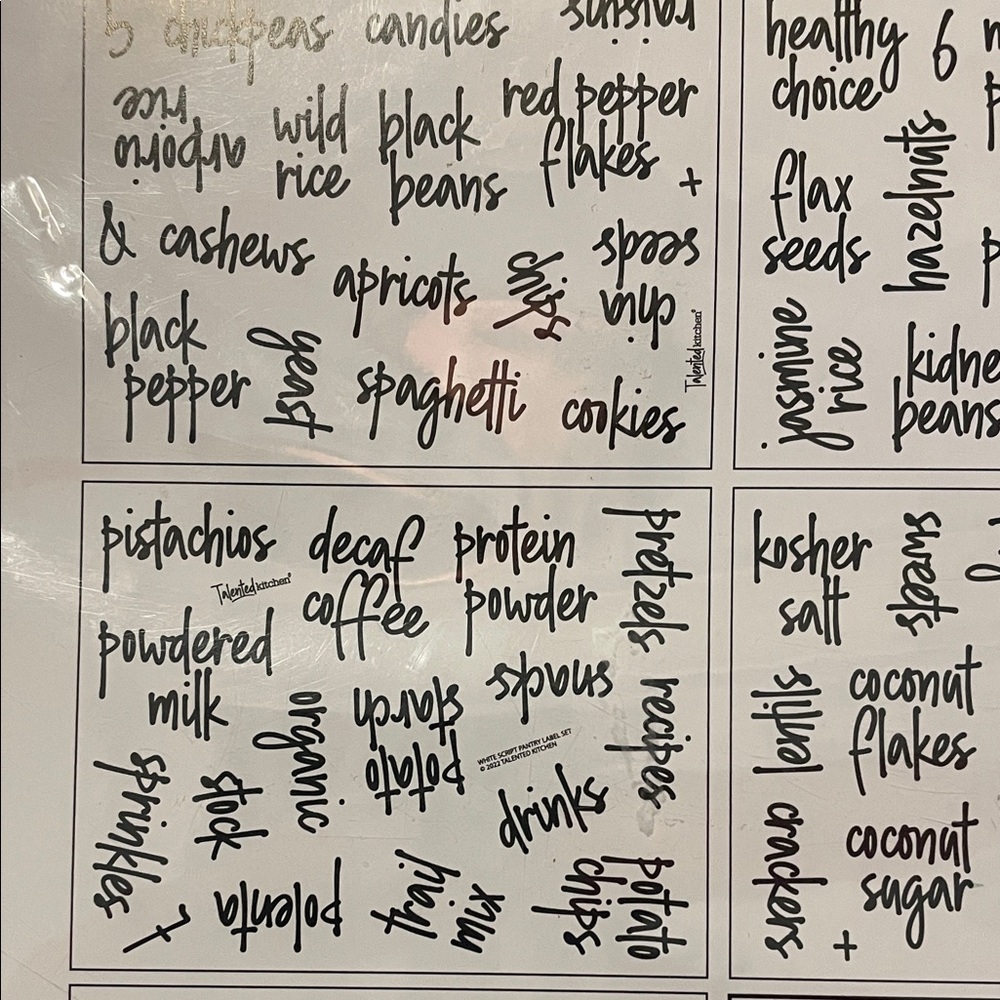 5 chickpeas candies raisins
arborio
rice
wild
rice
black
beans
red pepper
flakes
+
& cashews
apricots
chips
chia
seeds
black
pepper
yeast
spaghetti
cookies
Talented kitchen®
healthy
choice
6
flax
seeds
hazelnuts
jasmine
rice
beans
pistachios
decaf
coffee
protein
powder
pretzels
Talented kitchen®
powdered
milk
organic
potato
starch
snacks
recipes
WHITE SCRIPT PANTRY LABEL SET
© 2022 TALENTED KITCHEN
sprinkles
stock
drinks
polenta
trail
mix
potato
chips
kosher
salt
sweets
lentils
coconut
flakes
crackers
+
coconut
sugar